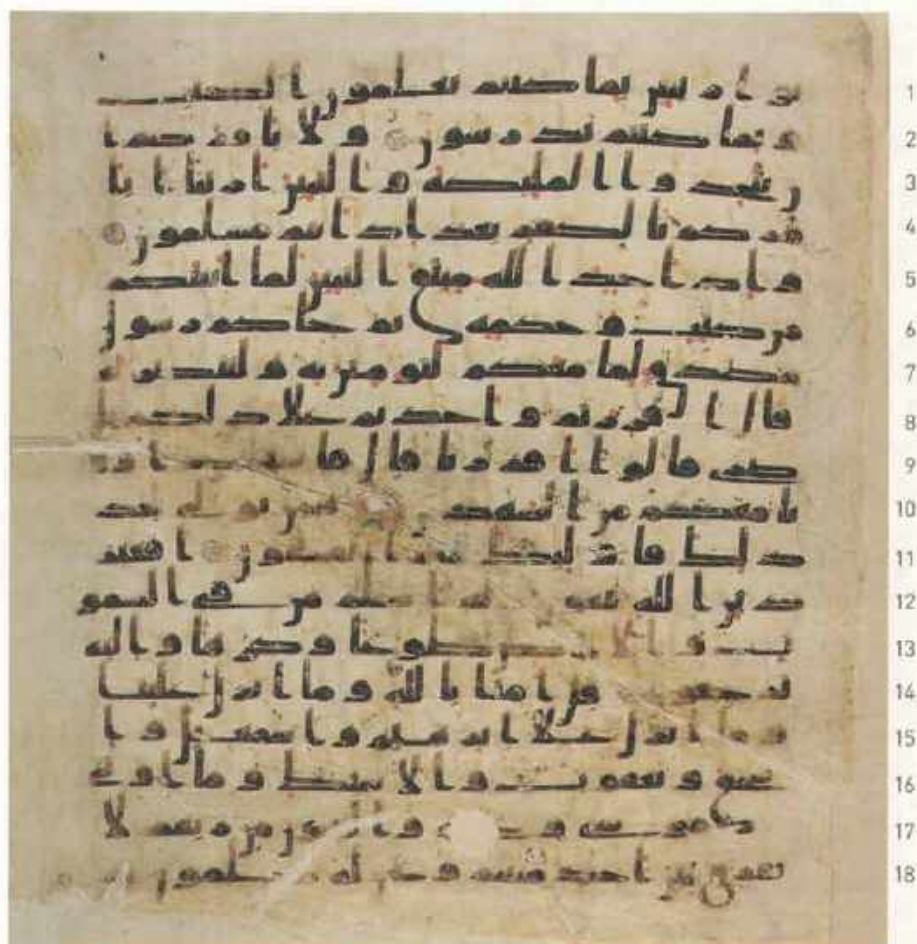 نوا ربنين بما كنتم تعلمون الكتب 1
وبما كنتم تدرسون ولا يامركم ا 2
ن تتخذوا الملئكة والنبين اربابا ايا 3
مركم بالكفر بعد اذ انتم مسلمون 4
واذ اخذ الله ميثق النبين لما اتيتكم 5
من كتب وحكمة ثم جاكم رسول 6
مصدق لما معكم لتومنن به ولتنصرنه 7
قال اقررتم واخذتم على ذلكم ا 8
صرى قالوا اقررنا قال فاشهدوا وا 9
نا معكم من الشهدين فمن تولى بعد 10
ذلك فاولئك هم الفسقون افغير 11
دين الله تبغون وله اسلم من فى السمو 12
ت والارض طوعا وكرها واليه 13
ترجعون قل امنا بالله وما انزل علينا 14
وما انزل على ابرهيم واسمعيل وا 15
سحق ويعقوب والاسبط وما اوتى 16
موسى وعيسى والنبيون من ربهم لا 17
نفرق بين احد منهم ونحن له مسلمون 18